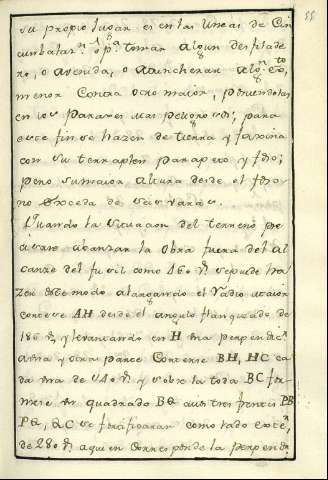 su propio lugar es en las lineas de Cir
cunbalazn. o pa. tomar algun desfilade
ro, o avenida, o atrincherar
menor Contra otro maior, poniendolas
en los parages mas peligrosos; para
este fin se hazen de tierra y faxina
con su terraplen parapeto y foso;
pero su maior altura desde el foso
no exceda de seis varas.
Quando la situacion del terreno pre
cisare abanzar la obra fuera del al
canze del fusil como 160 vs. se puede ha
zer deste modo alargando el Radio
como se AH desde el angulo flanqueado de
186 vs. y levantando en H una perpendicr.
a una y otra parte Cortense BH, HC ca
da una de 140 vs. y sobre la toda BC for
mese un quadrado BQ cuios tres frentes PB
PQ, QC se fortificaran como lado exter.
de 280 vs. a quien corresponde la perpendr.